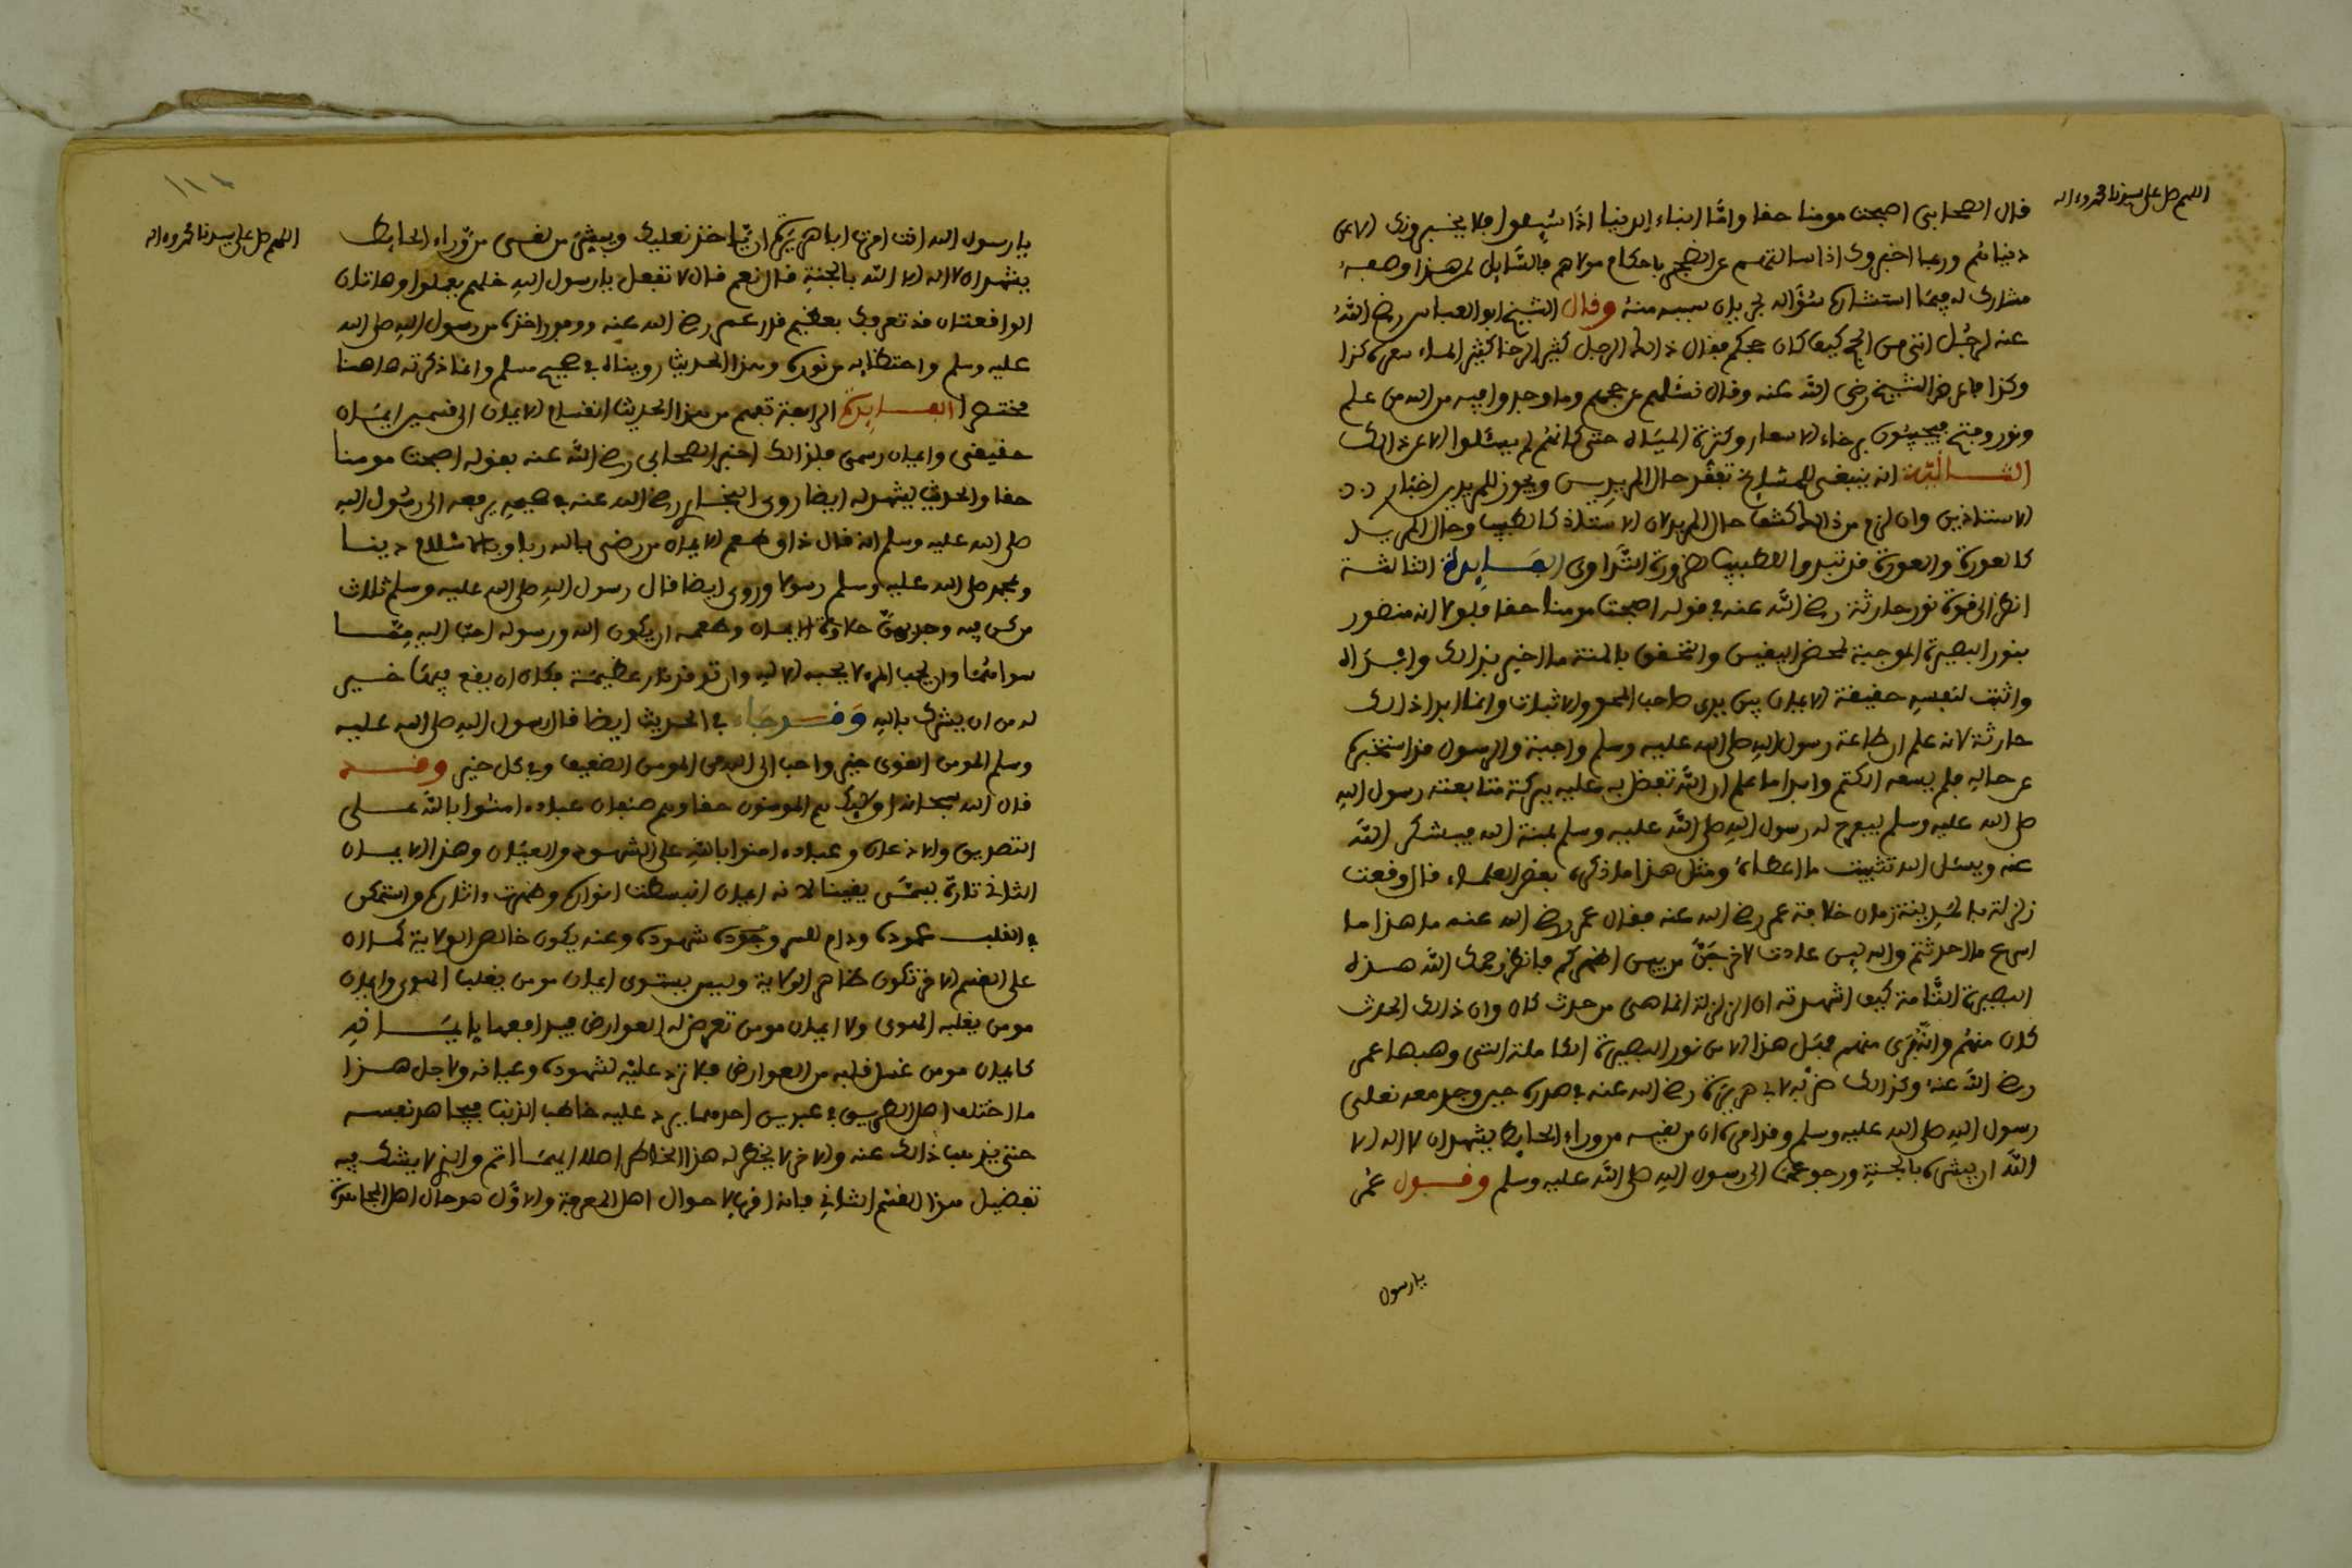 اللهم صل على سيدنا محمد وءاله
قال الصحابي اصبحت مومنا حقا وامّا ابناء الدنيا اذا سُيِلوا فلا يخبرونك الا عن
دنياهُم وربما اخبروك اذا سالتهم عن الضجر باحكام مولاهم فالسَّايل لمن هذا وصفه
مشارك له فيمَا استشاره سُؤاله لجريان سببه منهُ وقال الشيخ ابو العباس رضي اللهُ
عنه لرجُل اتى من الحج كيف كان حجكم فقال ذالك الرجل كثير الرخا كثير الماء سعر كذا
وكذا فاعرض الشيخ رضي الله عنه وقال نسئلهم عن حجهم وما وجدوا فيه من الله من علم
ونور وفتح فيجيبُون برخاء الاسعار وكثرة الميَاه حتى كانهُم لم يسئلوا الا عن ذالك
الثانيَة انه ينبغى للمشايخ تفقّد حال المريدين ويجوز للمريدين اخبار
الاستاذين وان لزم من ذالك كشف حال المريد لان الاستاذ كالطبيب وحال المريد
كالعورة والعورة قد تبدوا للطبيب لضرورة التَّداوى الفَايدة الثالثة
انظر الى قوة نور حارثة رضي الله عنه في قوله اصبحت مومنا حقا فلولا انه منصور
بنور البصيرة الموجبة لمحض اليقين والتحقق بالمنة ما اخبر بذالك
واثبت لنفسِه حقيقة الايمان بين يدى صاحب المحو والاثبات وانما ابدا ذالك
حارثة لانه علم ان طاعة رسول اللهِ صلى الله عليه وسلم واجبة والرسول قد استخبره
عن حاله فلم يسعه الكتم وابدا ما علم ان اللهَ تفضل به عليه ببركة متابعته رسول اللهِ
صلى الله عليه وسلم ليفرح له رسول اللهِ صلى الله عليه وسلم بمنة الله فيشكر اللهَ
عنه ويسئل الله تثبيت ما اعطاهُ ومثل هذا ما ذكره بعض العلماء قال وقعت
زلزلة بالمَدِينة زمان خلافة عمر رضي الله عنه فقال عمر رضي الله عنه ما هذا ما
اسرع ما احدثتم والله ليس عادت لاخرجَنّ من بين اظهركم فانظر رحمك الله هذه
البصيرة التَّامة كيف اشهدته ان الزلزلة انما هي من حدث كان وان ذالك الحدث
كان منهُم وانّه بَرِى منهم فهَل هذا الا من نور البصيرة الكاملة التى وهبها عمر
رضي الله عنهُ وكذالك ضرْبه لابي هريرة رضي الله عنه في صدره حين وجد معه نعلى
رسول اللهِ صلى الله عليه وسلم وقد امره ان من لقيه من وراء الحايط يشهد ان لا اله الا
اللهَ ان يبشره بالجنةِ ورجوعهمَا الى رسول اللهِ صلى الله عليه وسلم وقول عمَر
يا رسول
اللهم صل على سيدنا محمد وءاله
يا رسول الله انت امرت ابا هريرَة ان يَّاخذ نعليك ويبشّر من لقى من وَّراء الحايط
يشهد ان لا اله الا الله بالجنةِ قال نعم قال لا تفعل يا رسول اللهِ خلهم يعملوا وهاتان
الواقعتان قد تعرفك بعظيم قدر عمر رضي الله عنه ووفور اخذه من رسول اللهِ صلى الله
عليه وسلم واحتظايه من نوره وهذا الحديث رويناه في صحيح مسلم وانما ذكرته هاهنا
مختصرا الفايدة الرابعة تفهم من هذا الحديث انقسام الايمان الى قسمين ايمَان
حقيقى وايمان رسمى فلذالك اخبر الصحابي رضي الله عنه بقوله اصبحت مومنا
حقا والحديث يشهد له ايضا روى البخارى رضي الله عنه في صحيحه يرفعه الى رسُول اللهِ
صلى الله عليه وسلم انه قال ذاق طعم الايمان من رضى بالله ربا وبالاسلام دينا
وبمحمد صلى الله عليه وسلم رسولا وروى ايضا قال رسول اللهِ صلى الله عليه وسلم ثلاث
من كن فيه وجد بهنّ حلاوة الايمان وطعمه ان يكون الله ورسوله احبّ اليه مِمّا
سواهُما وان يحب المرء لا يحبه الا للهِ وان توقد نار عظيمَة فكان ان يقع فيها خير
له من ان يشرك باللهِ وَقد جَاء في الحديث ايضا قال رسول اللهِ صلى الله عليه
وسلم المومن القوى خير واحب الى الله من المومن الضعيف وفي كل خير وقد
قال الله سبحانه اولايِك هم المومنون حقا وهم صنفان عباده امنُوا بالله على
التصديق والاذعان وعباده امنوا باللهِ على الشهود والعيَان وهذا الايمان
الثانى تارة يسَمّى يقينا لانه ايمان انبسطت انواره وظهرت ءاثاره واستمكن
في القلب عموده ودام للسر وجوده شهوده وعنه يكون خالص الولاية كما ان
على القسم الاخر تكون ظاهر الولاية وليس يستوى ايمان مومن يغلب الهوى وايمان
مومن يغلبه الهوى ولا ايمان مومن تعرض له العوارض فيدافعها بايمَانه
كايمان مومن غسل قلبه من العوارض فلا ترد عليْه لشهوده وعيانه ولاجل هذا
ما اختلف اهل الطريق في عبدين احدهما يرد عليه خاطب الزنا فيجاهد نفسه
حتى يذهب ذالك عنه والاخر لا يخطر له هذا الخاطر اصلا ايهمَا اتم والذى لا يشك فيه
تفضيل هذا القسم الثانى فانه اقرب لاحوال اهل المعرفة والاوَّل هو حال اهل المجاهدة